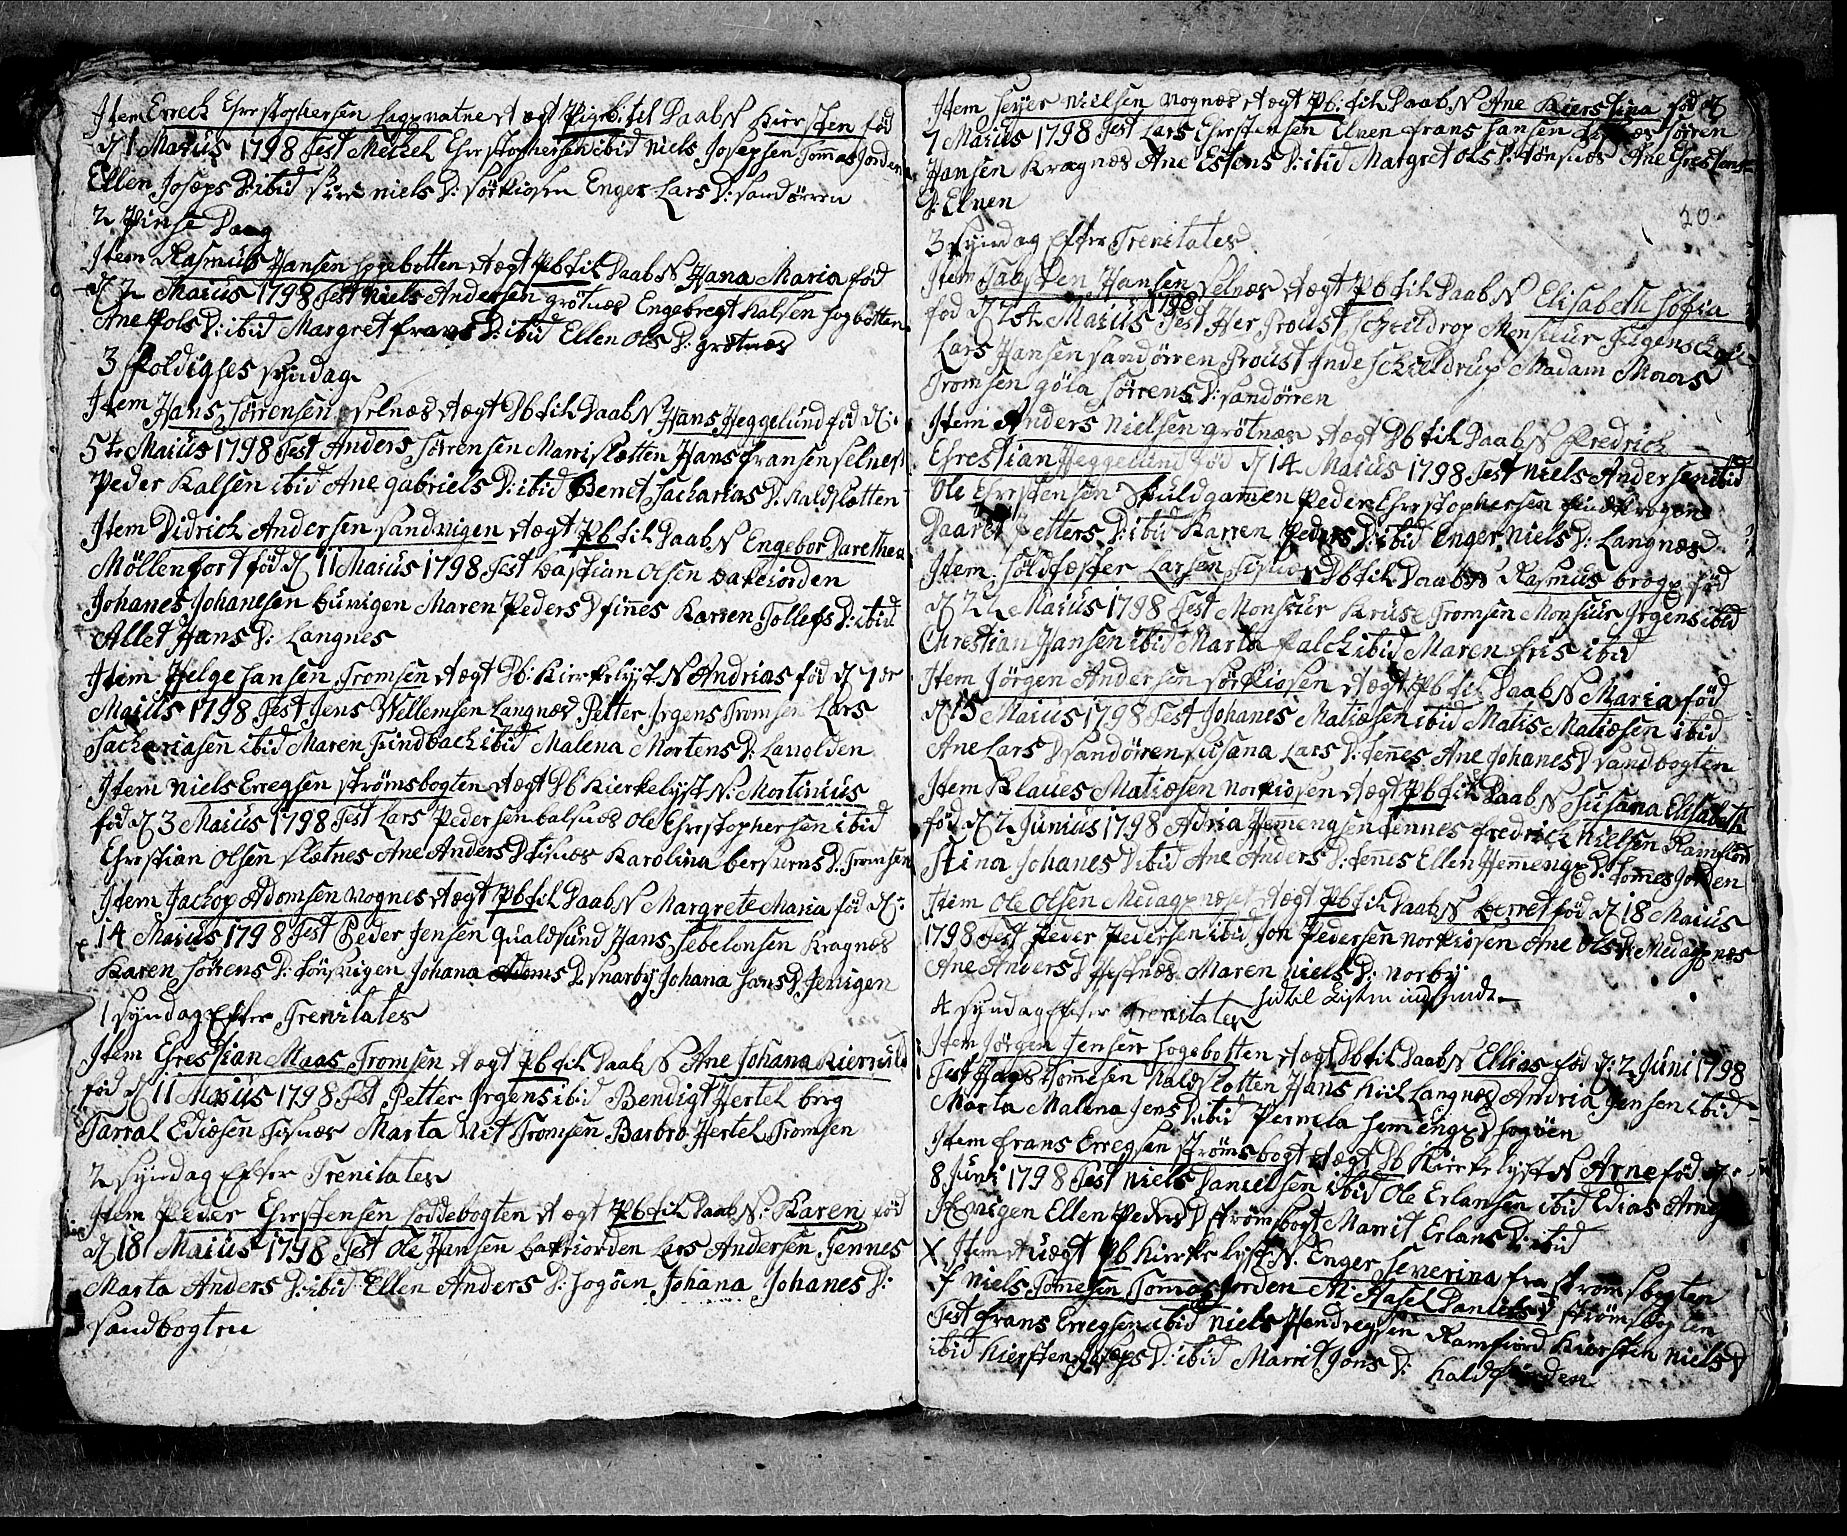 Item Erreck Chrstophersen Lagpnatne ægt Pigeb til Daab N Kiersten fød
d 1 Maius 1798 Test Mekel Chrstophersen ibid Niels Josephsen Tommas Jorden
Ellen Joseps D: ibid niels D: Sørkiosen Enger Lars D: Sandørren
2 Pinse Daag
Item Rasmus Hansen Sogebotten Ægt Pb til Daab N Hana Maria fød
d 2 Maius 1798 Test Niels Andersen grötnæs Engebregt Kalsen Sogbotten
Ane Pols D: ibid Margret frans D: ibid Ellen Ols D: grötnæs
3 Poldigses Syndag
Item Hans Sörrensen Selnæs Ægt Db til Daab N Hans Heggelund fød d:
5te Maius 1798 Test Anders Sörrensen Marrislætten Hans fransen Selnes
Peder Kalsen ibid Ane gabriels D: ibid Benet Sacharias D: Kaldslætten
Item Didrich Andersen Sandvigen Ægt Pb til Daab N Engebor Darethea
Möllenfort fød d 11 Maius 1798 Test Bastian Olsen Bakeiorden
Johanes Johanesen Burvigen Maren Peders D finnes Karren Tollefs D: ibid
Allet Hans D: Langnes
Item Helge Hansen Tromsen Ægt Db: Kierkelyst N Andrias fød d 7de
Maius 1798 Test Jens Wellemsen Langnæs Petter Jrgens Tromsen Lars
Sachariasen ibid Maren Lindbach ibid Malena Mortens D: Lavolden
Item Niels Erregsen Strömsbogten Ægt Db Kierkelyst N: Mortinius
fød d 3 Maius 1798 Test Lars Pedersen balsnæs Ole Chrstophersen ibid
Chrstian Olsen Slætnes Ane Anders D fisnæs Karolina bersvens D: Tromsen
Item Jackop Adomsen Vognes Ægt Pb til Daab N Margrete Maria fød d:
14 Maius 1798 Test Peder Jensen Qualdsund Hans Sebelonsen Kragnæs
Karen Sörrens D: Tönsvigen Johana Adoms D Snarby Johana Hans D Jevigen
1 Syndag Efter Trenitates
Item Chrestian Maas Tromsen Ægt Pb til Daab N Ane Johana Kierruld
fød d 11 Maius 1798 Test Petter Jrgens ibid Bendigt Hertel brrg
Tarral Ediæsen Tisnæs Marta Vit Tromsen Barbro Hertel Tromsen
2 Syndag Efter Trenitates
Item Peder Chrstensen Loddebogten Ægt Pb til Daab N: Karen fød
d 18 Maius 1798 Test Ole Hansen Bakeiorden Lars Andersen Tennes
Marta Anders D: ibid Ellen Anders D: Sogöen Johana Johanes D:
Sandbogten
Item Seyer Nielsen Vognæs Ægt Pb: til Daab N Ane Kierstina fød d
7 Maius 1798 Test Lars Chrstensen Elven frans Hansen Sörren
Hansen Kragnæs Ane Estens D: ibid Margret Ols D: Tönsnæs Ane Chrestens
D: Elven
20
3 Syndag Efter Trenitates
Item Tarsten Hansen Selnæs Ægt Pb til Daab N Elisabeth Sofia
fød d 25te Maius 1798 Test Her Proust Schieldrop Monsieur Jürgens
Lars Hansen Sandörren Proust Jnde Schieldrup Madam Moors
Tromsen göla Sörrens D: Sandörren
Item Anders Nielsen grötnæs Ægt Db til Daab N Fredrich
Chrestian Heggelund fød d 14 Maius 1798 Test Niels Andersen ibid
Ole Chrstensen Skuldgamen Peder Chrstophersen findkrogen
Daaret Petters D: ibid Karren Peders D: ibid Enger Niels D: Langnæs
Item Söldfester Larsen Tisnæs Db til Daab N Rasmus brogp fød
d 22 Maius 1798 Test Monsieur Kruse Tromsen Monsiur Jrgens ibid
Chrestian Hansen ibid Marta falch ibid Maren fris ibid
Item Jörgen Andersen Sörkiosen Ægt Pb til Daab N Maria fød
d 15 Maius 1798 Test Johanes Matiæsen ibid Matis Matiæsen ibid
Ane Lars D Sandörren Susana Lars D: fennes Ane Johanes D Sandbogten
Item Klaues Matiæsen Norkiosen Ægt Pb til Daab N Susana Elisabeth
fød d 2 Junius 1798 Adria Hemengsen Tennes fredrich Nielsen Ramfiord
Stina Johanes D: ibid Ane Anders D: Tennes Ellen Hemengs D: Tomes Jorden
Item Ole Olsen Medagpnæset Ægt Pb til Daab N Berret fød d 18 Maius
1798 Test Peder Pedersen ibid Jon Pedersen Norkiosen Ane Ols D: Medagpnæs
Ane Anders D Hestnæs Maren Niels D: Norby
4 Syndag Efter Trenitates hidtil Listen indsendt
Item Jörgen Jensen Sogebotten Ægt Db til Daab N Ellias fød d: 2 Juni 1798
Test Haas Tommesen Kaldslotten Hans Kiil Langnæs Andria Jensen ibid
Marta Malena Jens D: ibid Pernila Hemengs D Sogöen
Item frans Erregsen Strömsbogt Ægt Db Kierkelyst N Arne fød d:
8 Juni 1798 Test Niels Danielsen ibid Ole Erlansen ibid Edias Arng
Ellen Peders D Strömsbogt Marrit Erlans D: ibid
X Item Uægt Pb Kierkelyst N. Enger Severina fra Strömsbogten
f Niels Tomesen Tomasjorden M: Hasel Daniels D Strömsbogten
Test frans Erregsen ibid Niels Hendregsen Ramfiord Kiersten Niels D
ibid Kiersten Joseps D: ibid Marrit Jons D: Kaldfiorden